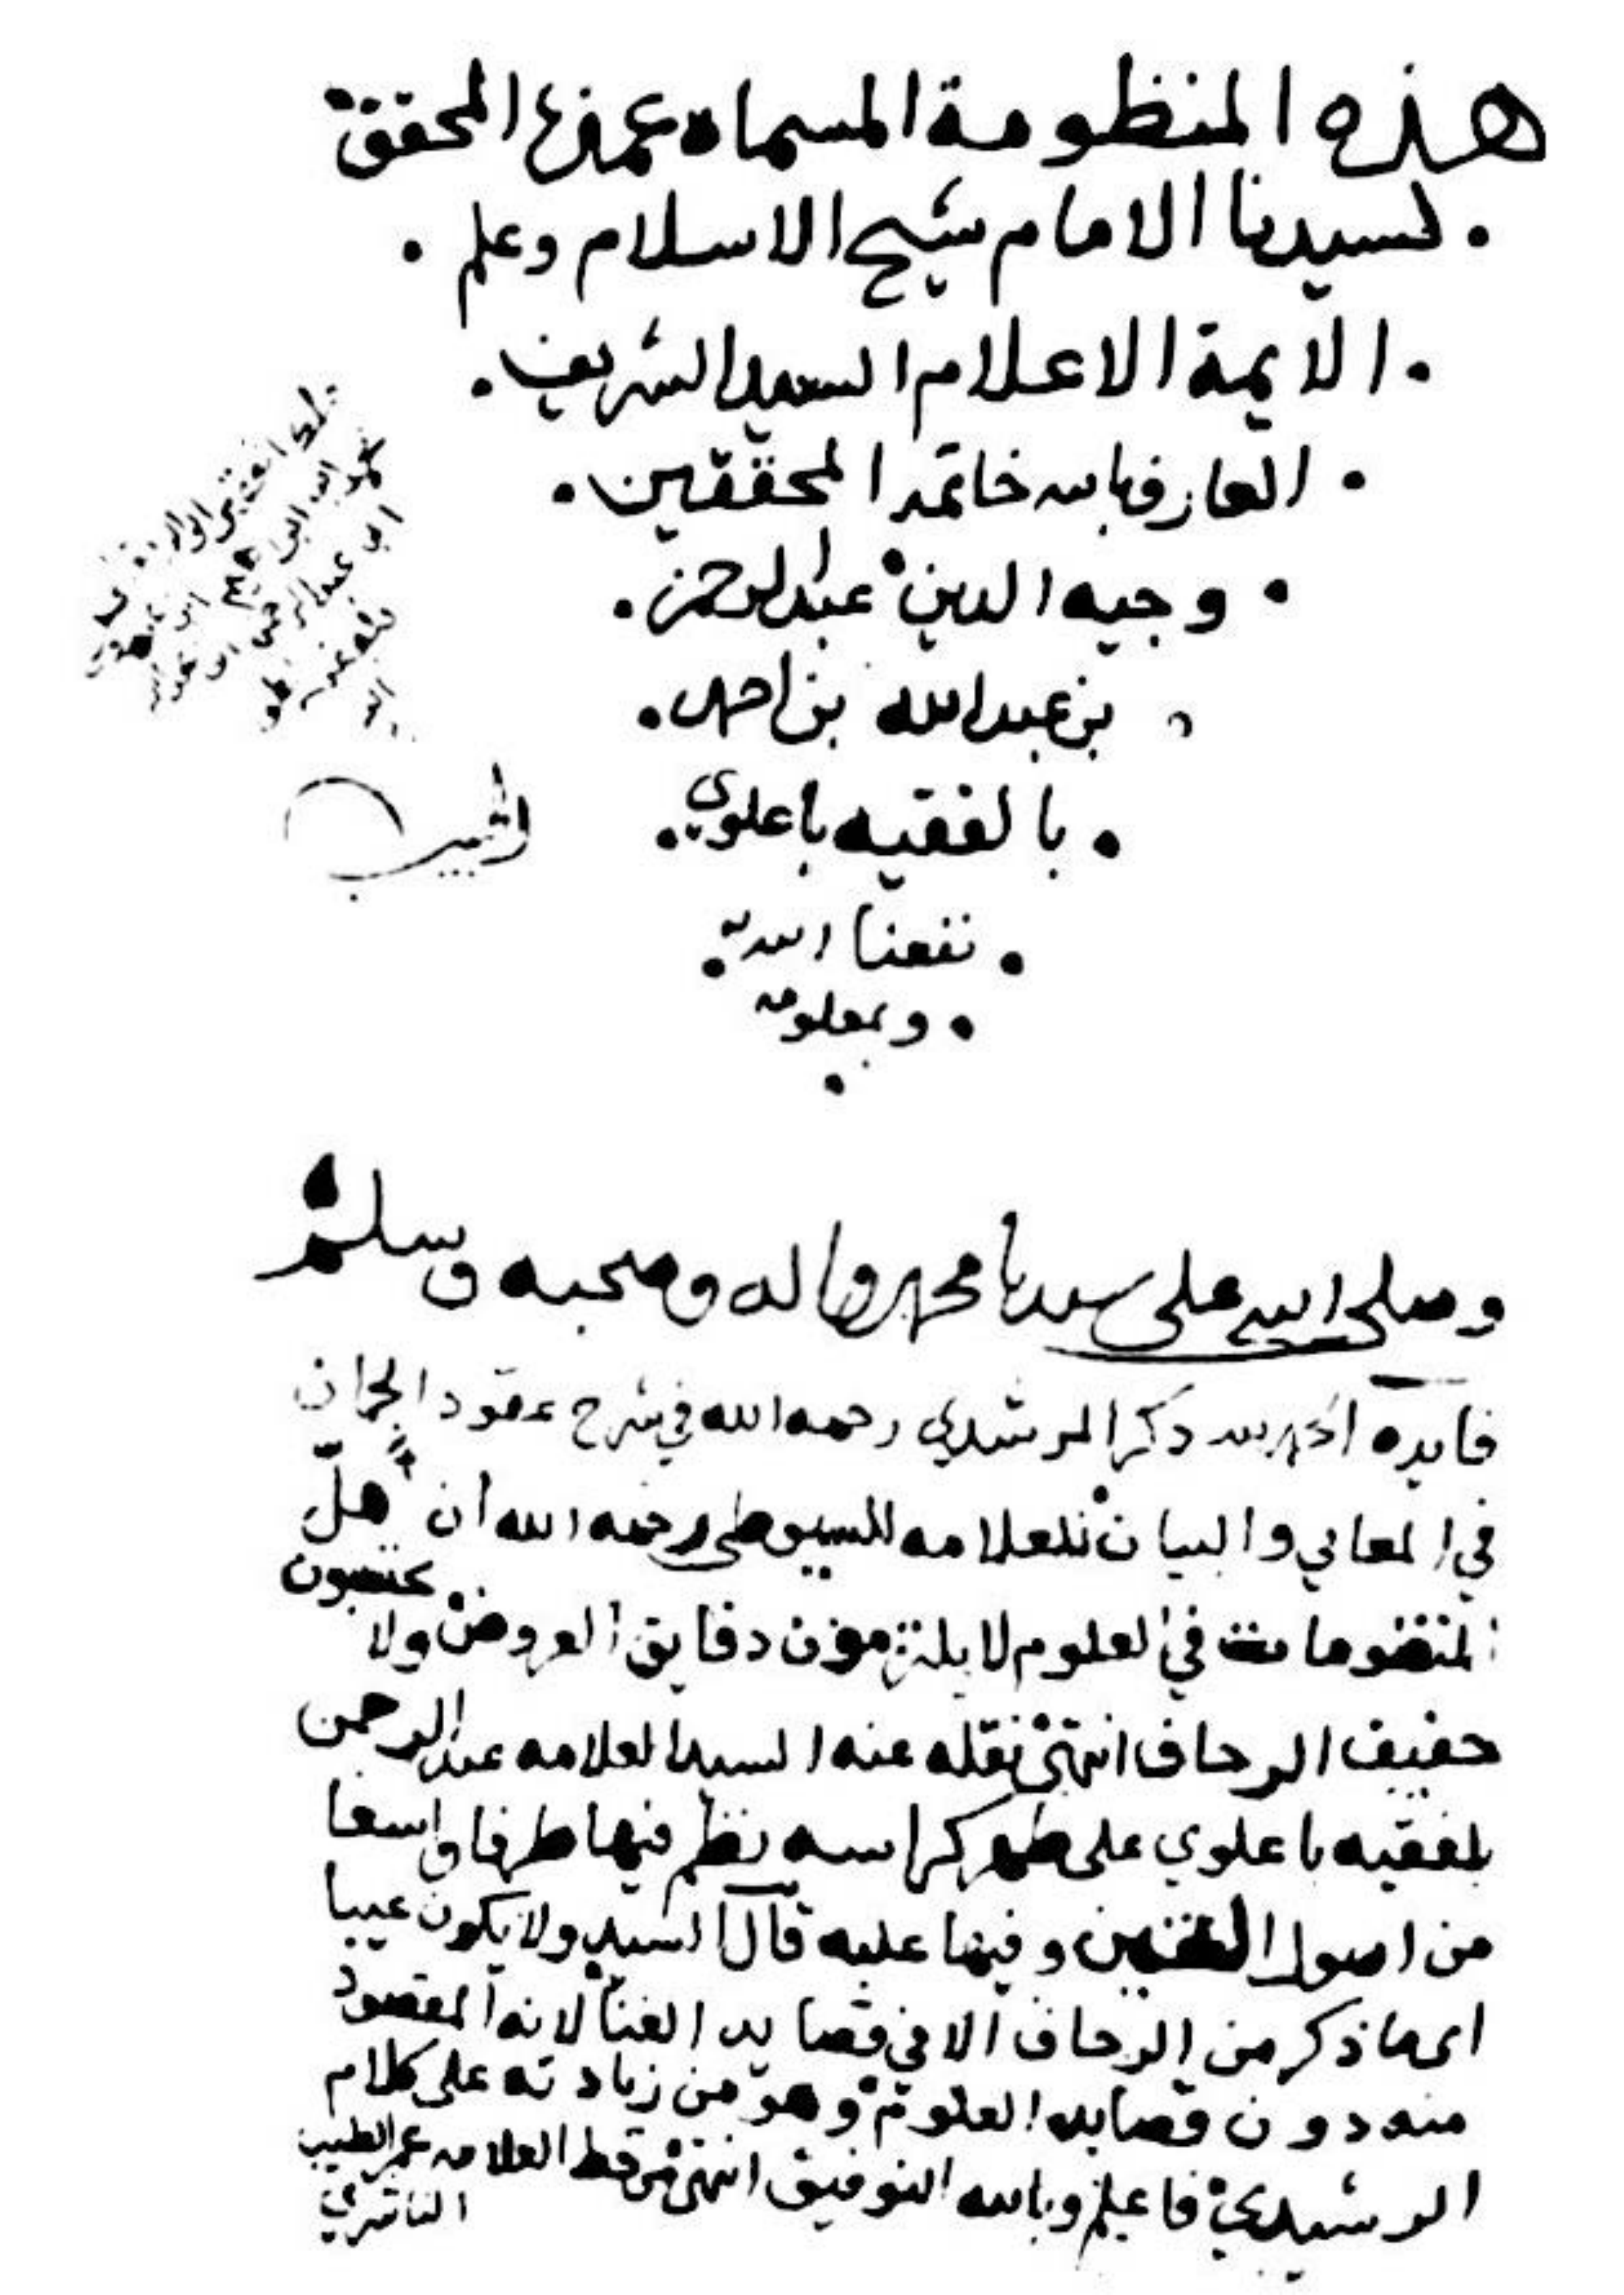 هذه المنظومة المسماه عمدة المحقق
لسيدنا الامام شيخ الاسلام وعلم
الايمة الاعلام السيد الشريف
العارف بالله خاتمة المحققين
وجيه الدين عبد الرحمن
بن عبد الله بن احمد
بالفقيه باعلوي
نفعنا الله به
وبعلومه
وصلى الله على سيدنا محمد واله وصحبه وسلم
فايده الحمد لله ذكر المرشدي رحمه الله في شرح عقود الجمان
في المعاني والبيان للعلامه السيوطي رحمه الله أن أهل
المنضومات في العلوم لا يلتزمون دقايق العروض ولا يجتنبون
خفيف الزحاف انتهى نقله عنه السيد العلامه عبد الرحمن
بلفقيه باعلوي على ظهر كراسه نظم فيها طرفا واسعا
من اصول وفيها عليه قال السيد ولا يكون عيبا
اى ما ذكر من الزحاف الا في قصايد الغنا لانه المقصود
منه دون قصايد العلوم وهو من زيادته على كلام
الرشيدي فاعلم وبالله التوفيق انتهى من خط العلامه عمر الطيب
الناشري